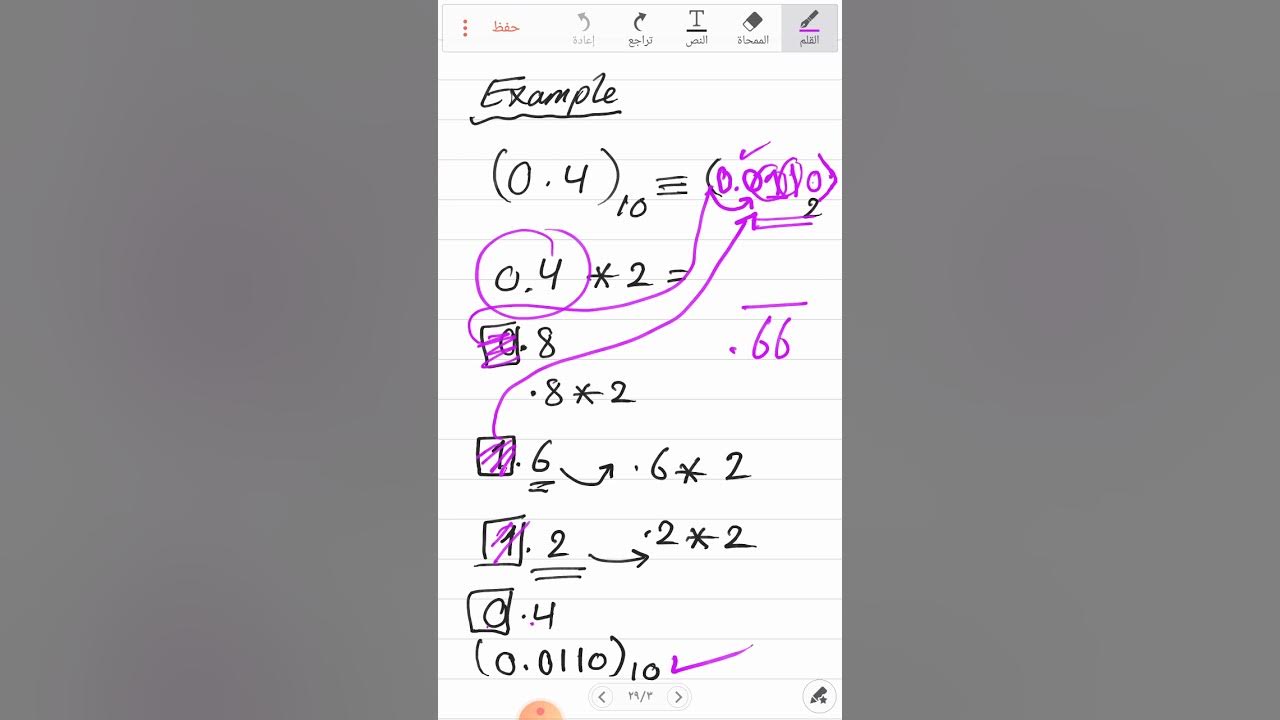 حفظ إعادة تراجع النص الممحاة القلم
Example
(0.4)10 ≡ (0. 0)2
0.4 * 2 =
0.8
.66
.8 * 2
1.6 .6 * 2
1.2 .2 * 2
0.4
(0.0110)10
٢٩/٣